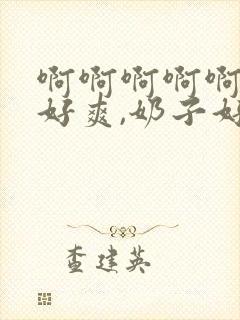 啊啊啊啊啊
好爽,奶子好
查建英